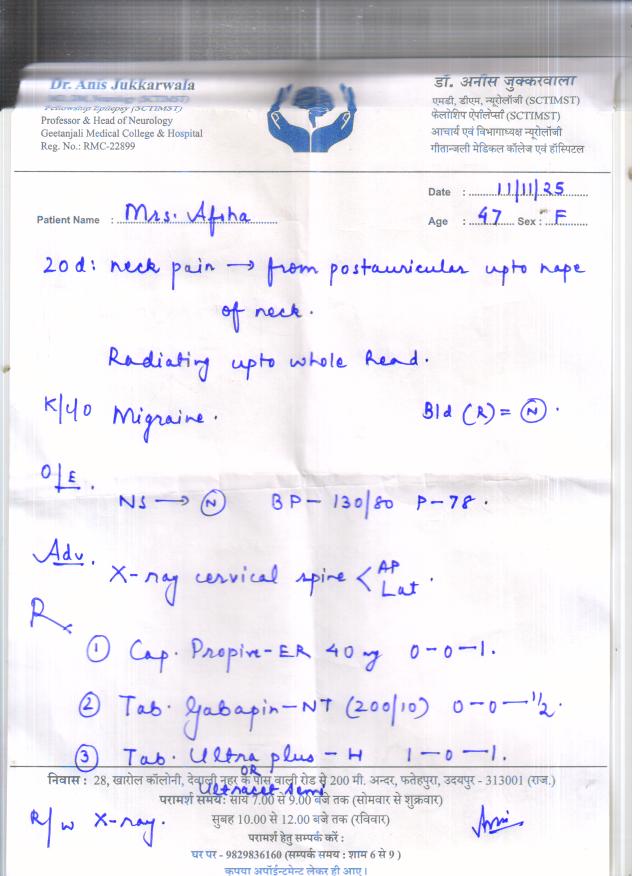 Dr. Anis Jukkarwala
Fellowship Epilepsy (SCTIMST)
Professor & Head of Neurology
Geetanjali Medical College & Hospital
Reg. No.: RMC-22899
डॉ. अनीस जुक्करवाला
एमडी, डीएम, न्यूरोलॉजी (SCTIMST)
फेलोशिप ऐपीलेप्सी (SCTIMST)
आचार्य एवं विभागाध्यक्ष न्यूरोलॉजी
गीतान्जली मेडिकल कॉलेज एवं हॉस्पिटल
Date : 11/11/25
Patient Name : Mrs. Afsha
Age : 47 Sex : F
20d: neck pain → from postauricular upto nape
of neck.
Radiating upto whole head.
K/c/o Migraine. Bld (R) = (N).
O/E.
NS → (N) BP - 130/80 P - 78.
Adv.
X-ray cervical spine < AP
Lat.
Rx
① Cap. Propive-ER 40 mg 0-0-1.
② Tab. Gabapin-NT (200/10) 0-0-1/2.
③ Tab. Ultra plus - H 1-0-1.
OR
Ultracet semi
निवास : 28, खारोल कॉलोनी, देवाली नहर के पास वाली रोड से 200 मी. अन्दर, फतेहपुरा, उदयपुर - 313001 (राज.)
परामर्श समय: सायं 7.00 से 9.00 बजे तक (सोमवार से शुक्रवार)
R/w X-ray.
सुबह 10.00 से 12.00 बजे तक (रविवार)
Anis
परामर्श हेतु सम्पर्क करें :
घर पर - 9829836160 (सम्पर्क समय : शाम 6 से 9 )
कृपया अपॉईन्टमेन्ट लेकर ही आए।